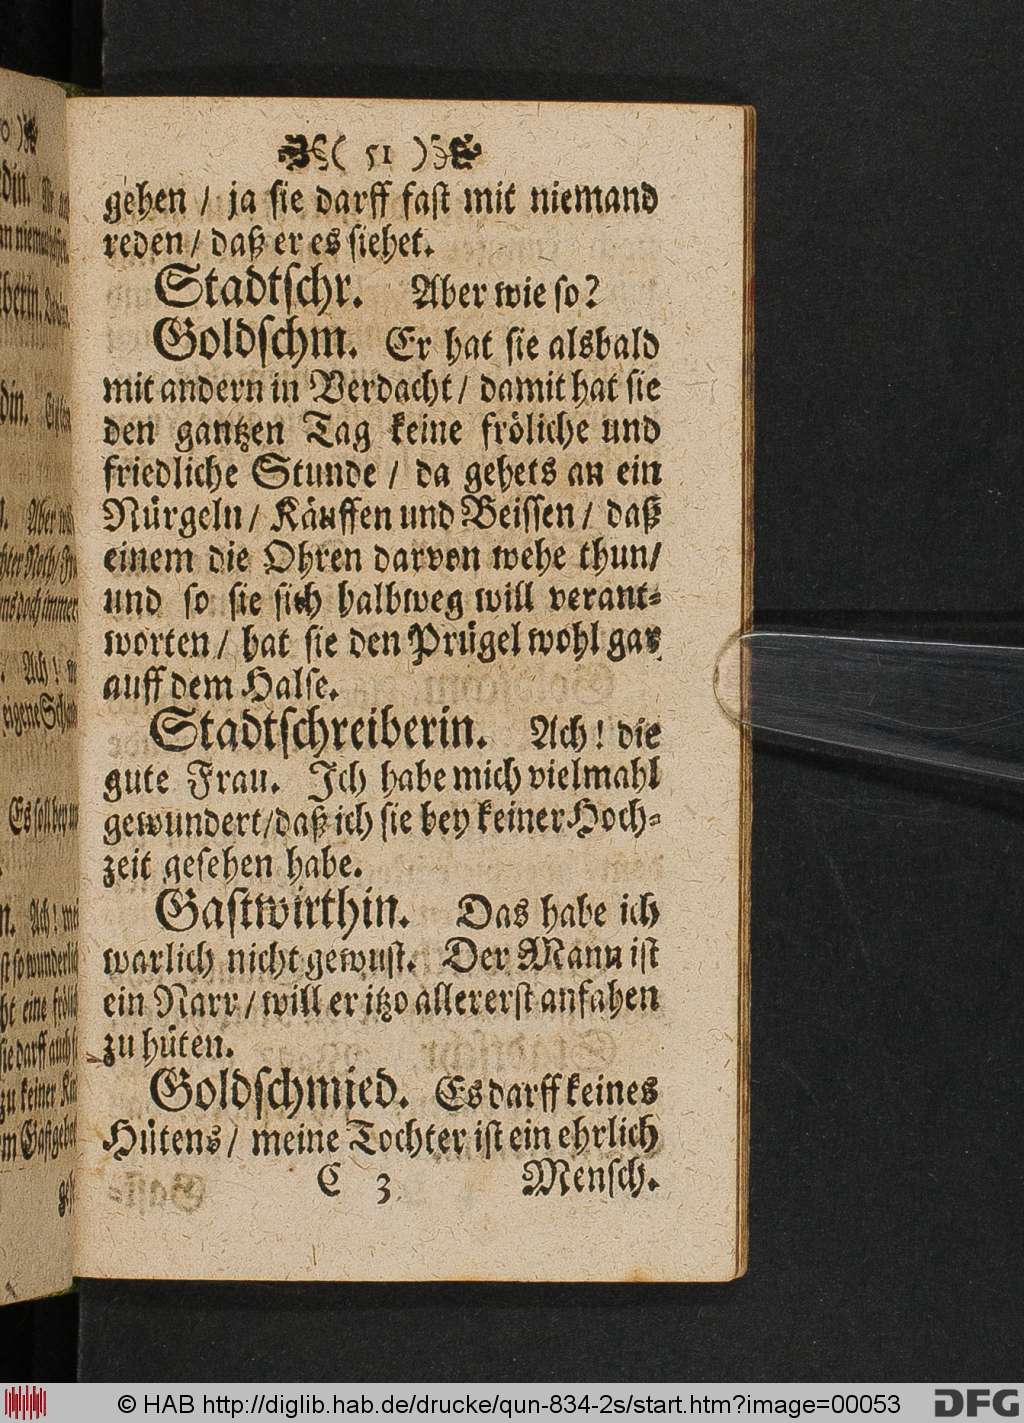 ( 51 )
gehen / ja sie darff fast mit niemand
reden / daß er es siehet.
Stadtschr. Aber wie so?
Goldschm. Er hat sie alsbald
mit andern in Verdacht / damit hat sie
den gantzen Tag keine fröliche und
friedliche Stunde / da gehets an ein
Nürgeln / Käuffen und Beissen / daß
einem die Ohren darvon wehe thun/
und so sie sich halbweg will verant-
worten / hat sie den Prügel wohl gar
auff dem Halse.
Stadtschreiberin. Ach! die
gute Frau. Ich habe mich vielmahl
gewundert/daß ich sie bey keiner Hoch-
zeit gesehen habe.
Gastwirthin. Das habe ich
warlich nicht gewust. Der Mann ist
ein Narr / will er itzo allererst anfahen
zu hüten.
Goldschmied. Es darff keines
Hütens / meine Tochter ist ein ehrlich
C 3 Mensch.
© HAB http://diglib.hab.de/drucke/qun-834-2s/start.htm?image=00053
DFG